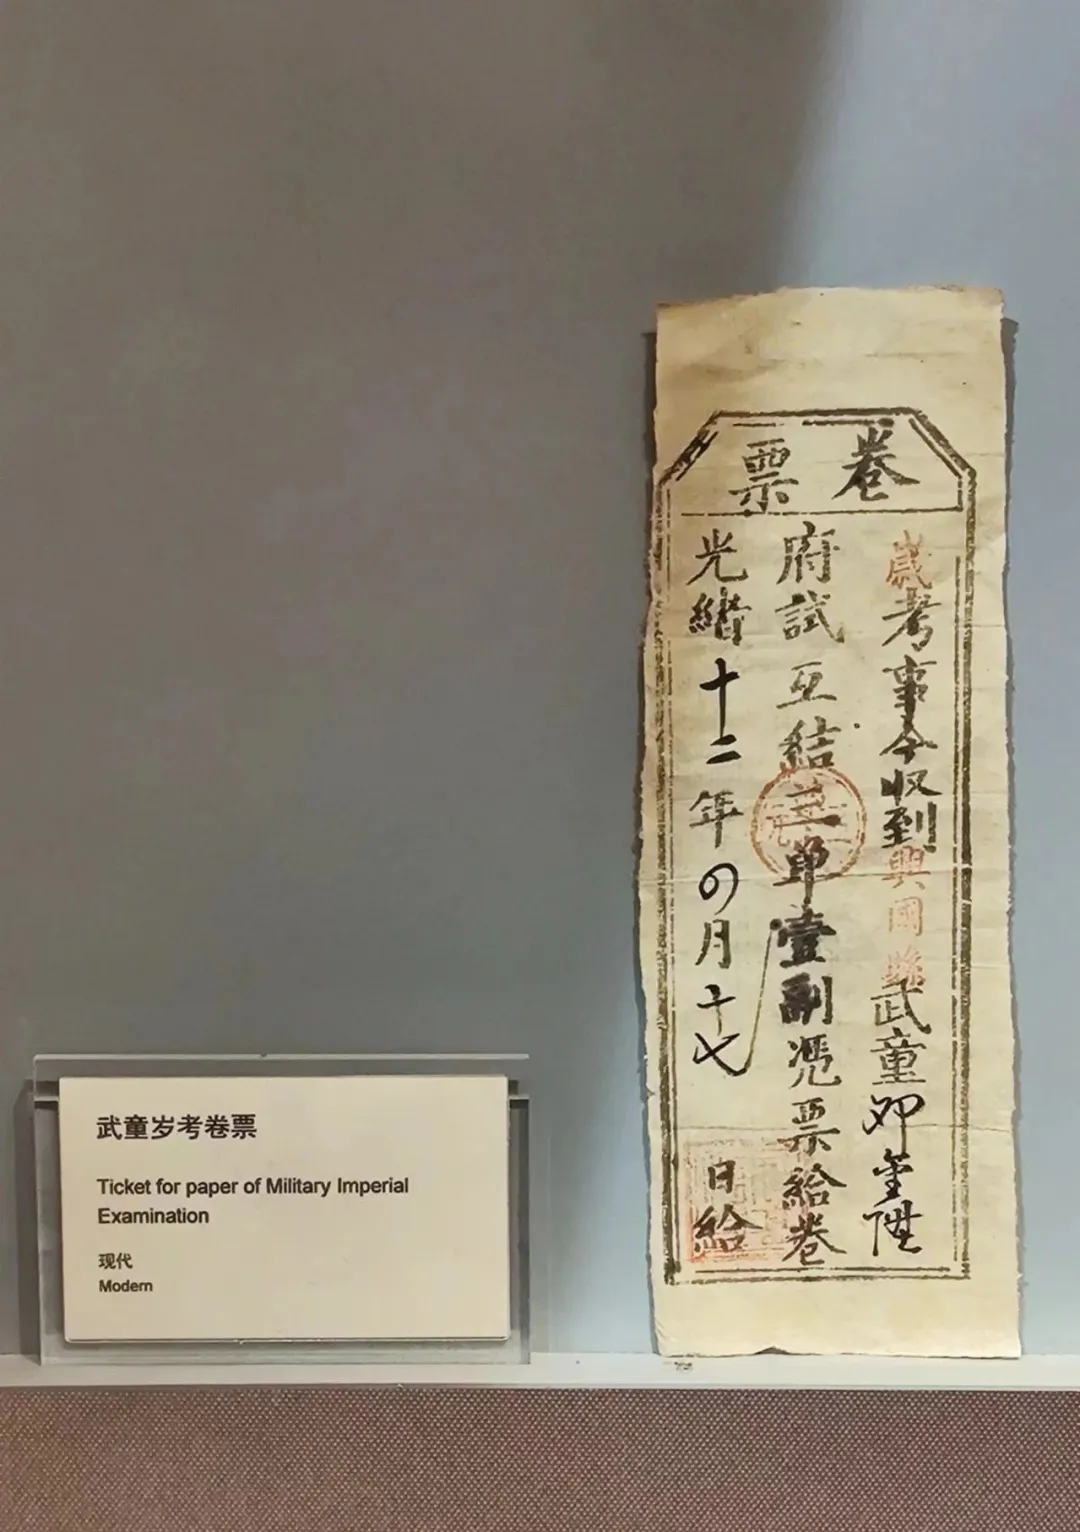 卷票
歲考事今収到興國縣武童邓金陞
府試互結单壹副憑票給卷
光緒十二年四月十七日給
武童岁考卷票
Ticket for paper of Military Imperial
Examination
现代
Modern